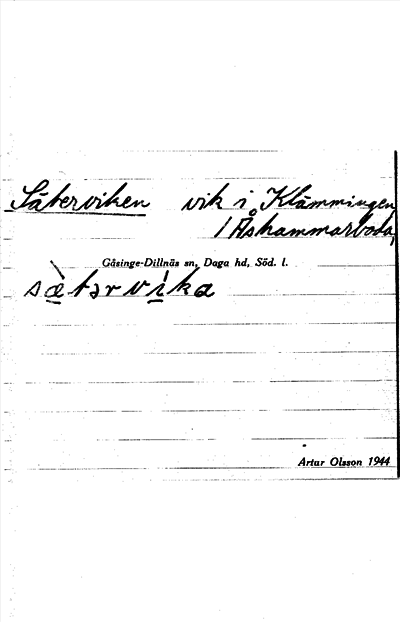 Säterviken vik i Klämmingen
/Åshammarboda/
Gåsinge-Dillnäs sn, Daga hd, Söd. l.
sæ̀tərvìka
Artur Olsson 1944